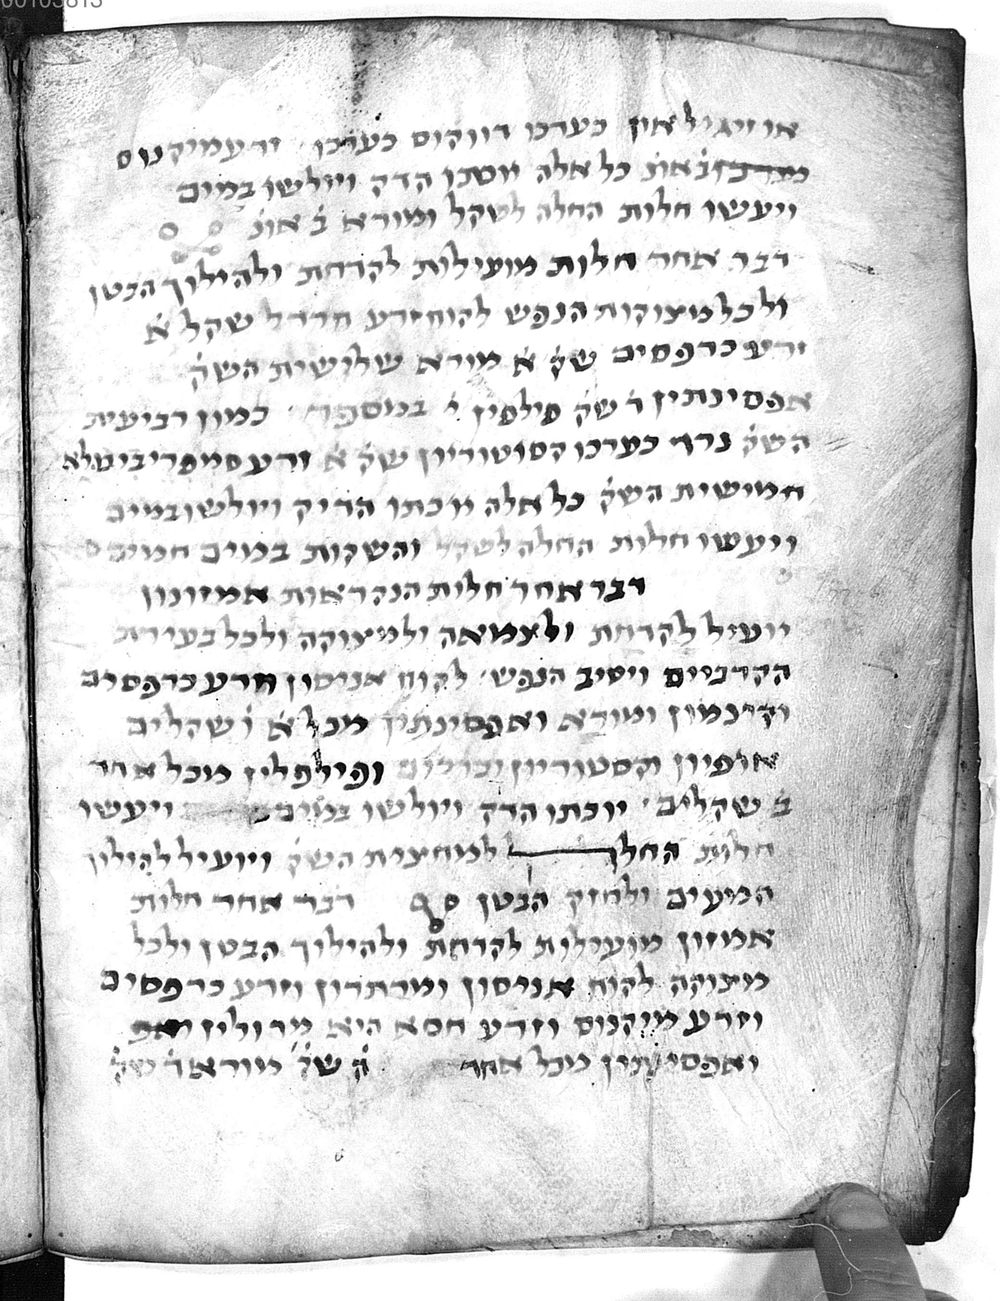 00105813
או זיגיל און כערכו דווקוס כערכו זרע מיקנוס
באונ̇ כל אלה יוסכן הדק ויולשו במים
ויעשו חלות החלה לשקל ומורא ב̇ אונ̇
דבר אחר חלות מועילות לקדחת ולהילוך הבטן
ולכל מצוקות הנפש לקוח זרע חרדל שקל א̇
זרע כרפסים שק̇ א̇ מורא שלושית השק̇
אפסינתין ו̇ שק̇ פילפלין י̇ במספר כמון רביעית
השק̇ נרד כערכו קסוטוריון שק̇ א̇ זרע
חמישית השק̇ כל אלה יוכתו הדיק ויולשו במים
ויעשו חלות החלה לשקל והשקות במים חמים
דבר אחר חלות הנקראות אמזונון
יועיל לקדחת ולצמאה ולמצוקה ולכל בעירת
הקרביים ויטיב הנפש לקוח אניסון וזרע כרפסים
וקינמון ומורא ואפסינתין מכל א̇ ו̇ שקלים
אופיון וקסטוריון ופילפלין מכל אחד
ב̇ שקלים יוכתו הדק ויולשו במים ויעשו
חלות החלה למחצית השק̇ ויועיל להילוך
המיעים ולחזק הבטן דבר אחר חלות
אמזון מועילות לקדחת ולהילוך הבטן ולכל
מצוקה לקוח אניסון ומרתרון וזרע כרפסים
וזרע מיקנוס וזרע חסא היא
ואפסינתין מכל אחד ה̇ שק̇ מורא ד̇ שק̇